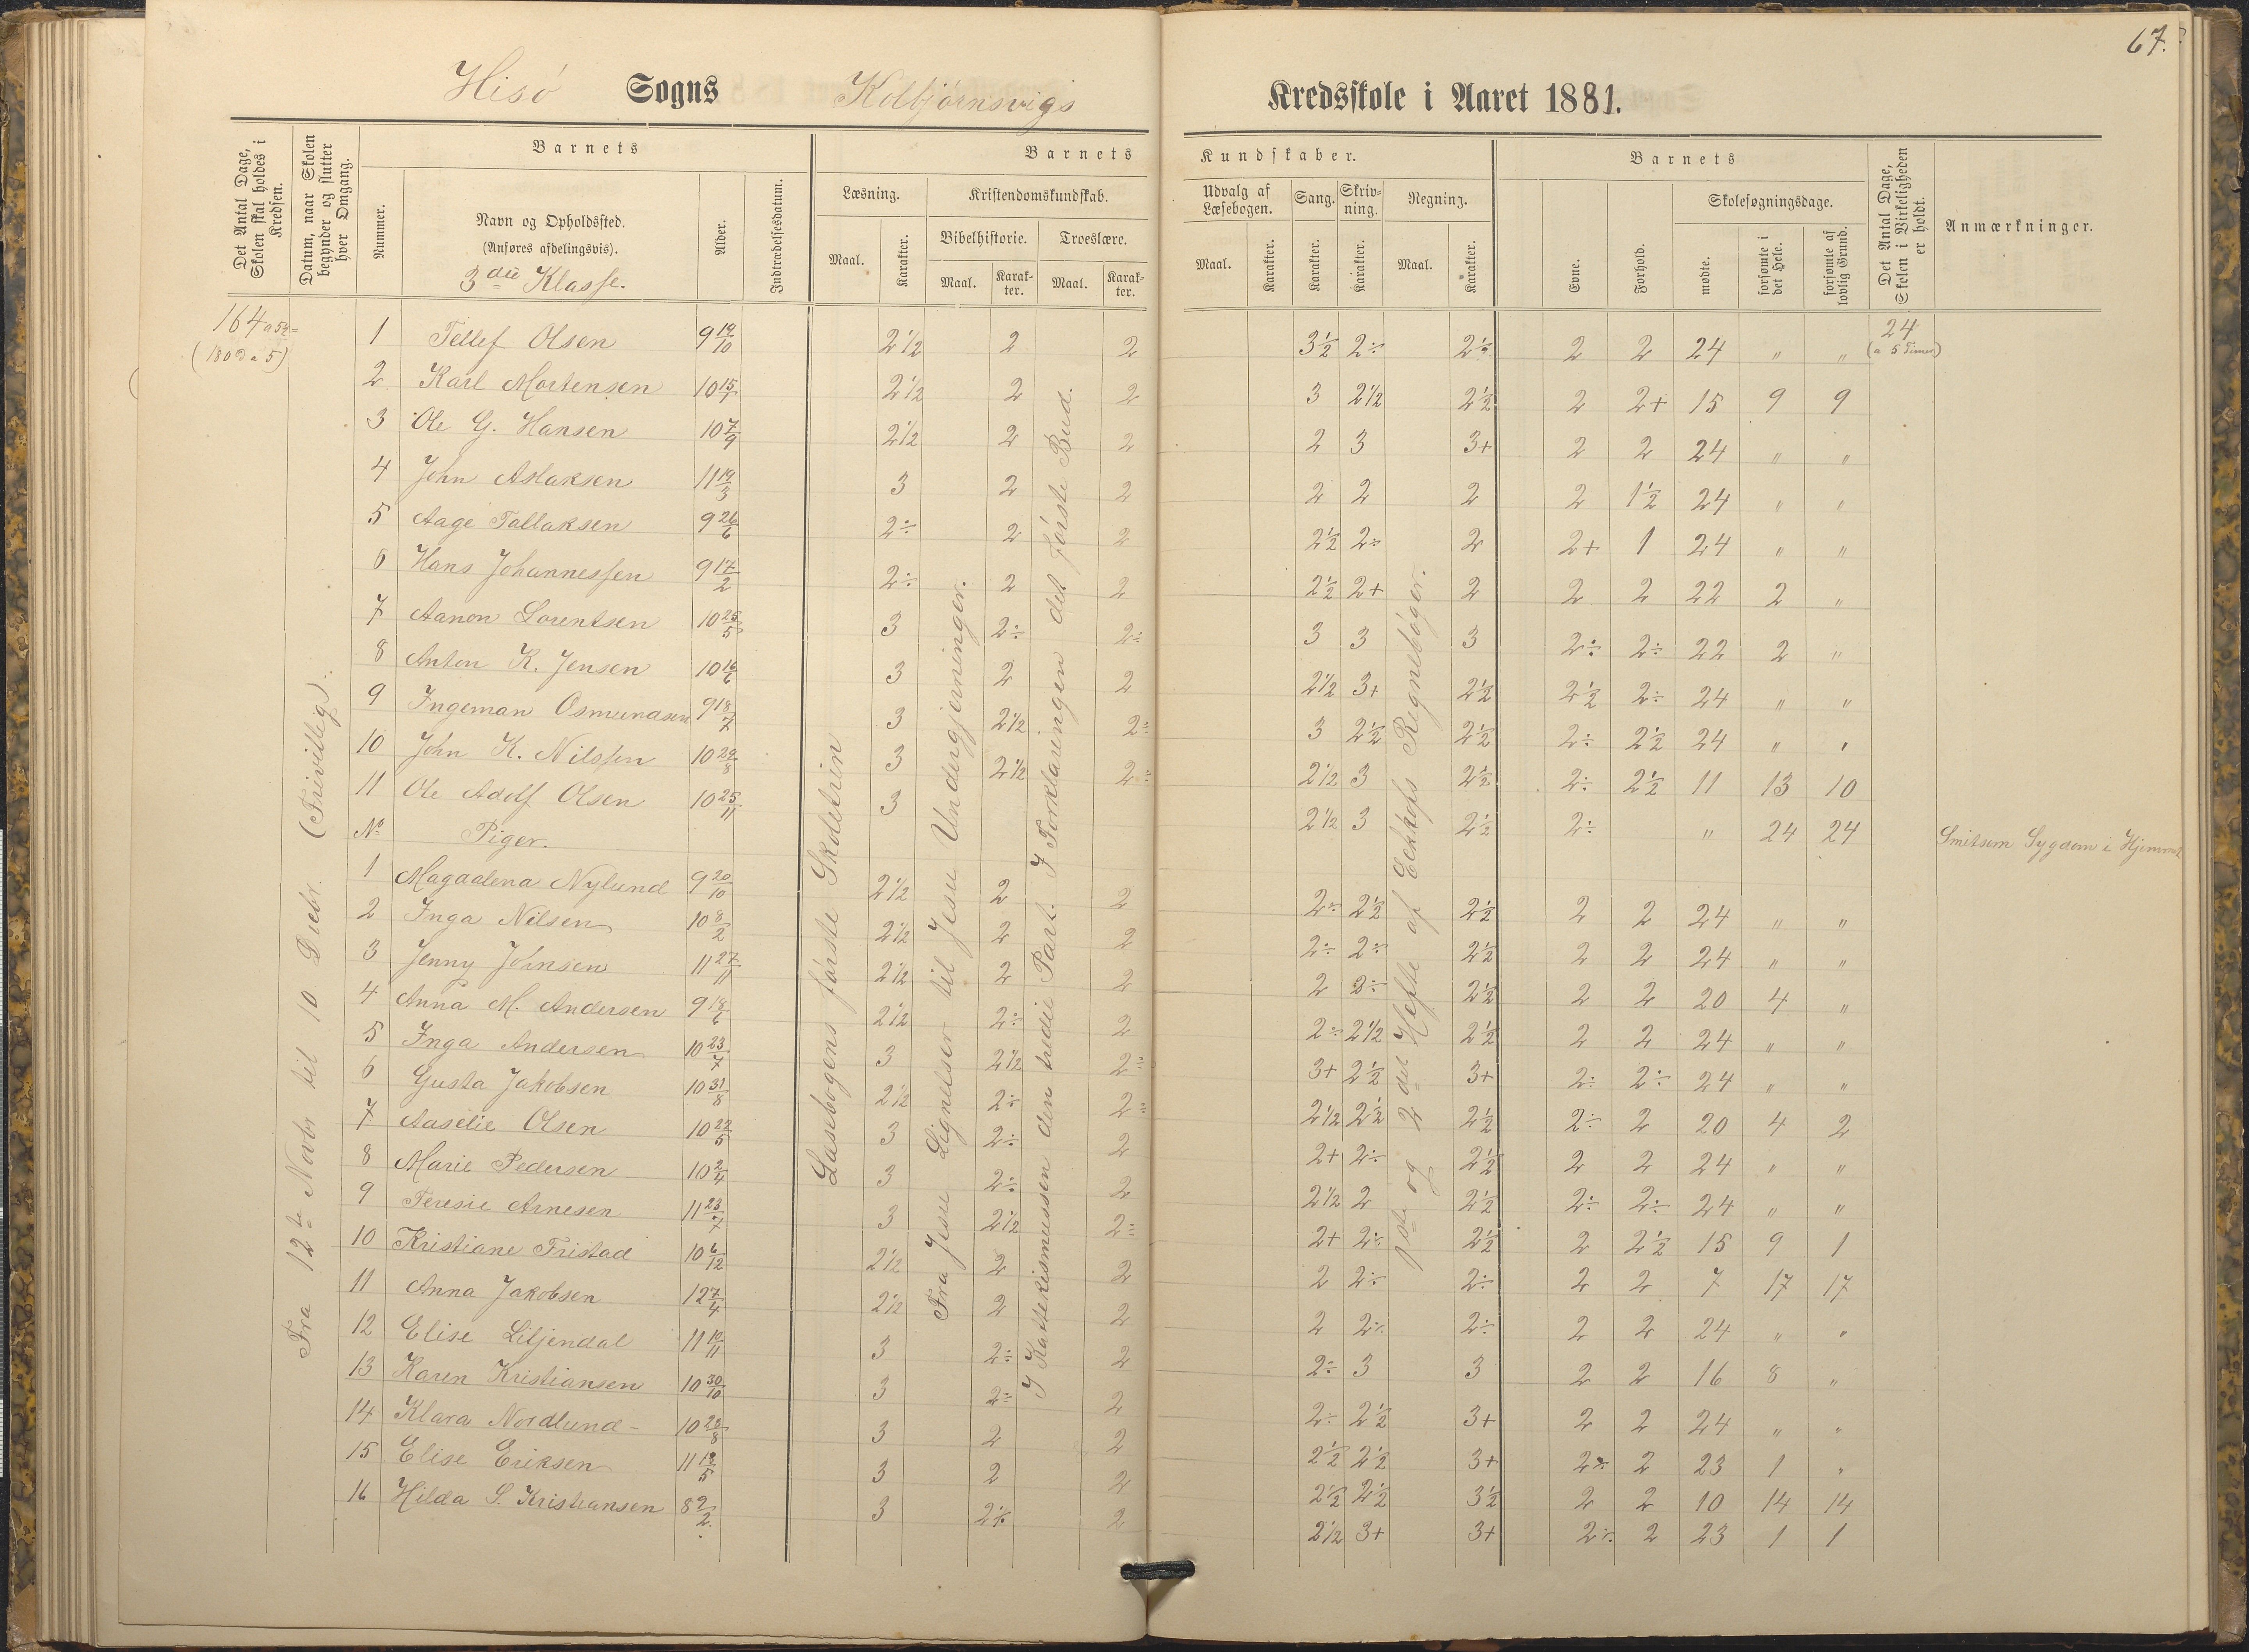 67.
Hisö Sogns Kolbjørnsvigs Kredsskole i Aaret 1881.
Det Antal Dage, Skolen skal holdes i Kredsen.
Datum, naar Skolen begynder og slutter hver Omgang.
Barnets
Nummer.
Navn og Opholdssted.
(Anføres afdelingsvis).
3die Klasse.
Alder.
Indtrædelsesdatum.
Barnets Kundskaber.
Læsning. Maal. Karakter.
Kristendomskundskab.
Bibelhistorie. Maal. Karakter.
Troeslære. Maal. Karakter.
Udvalg af Læsebogen. Maal. Karakter.
Sang. Karakter.
Skrivning. Karakter.
Regning. Maal. Karakter.
Barnets
Evne. Forhold.
Skolesøgningsdage.
mødte. forsømte i det Hele. forsømte af lovlig Grund.
Det Antal Dage, Skolen i Virkeligheden er holdt.
Anmærkninger.
164 a 5½=
(180 D a 5)
24
(a 5 Timer)
Fra 12te Novbr til 10 Decbr. (Frivillig).
Læsebogens første Skoletrin
Fra Jesu Lignelser til Jesu Undergjerninger.
I Kattekismussen den tredie Part. I Forklaringen det første Bud.
1ste og 2det Hefte af Eckhofs Regnebøger.
1 Tellef Olsen 9 19/10 2½ 2 2 3½ 2÷ 2½ 2 2 24 " "
2 Karl Mortensen 10 15/7 2½ 2 2 3 2½ 2½ 2 2+ 15 9 9
3 Ole G. Hansen 10 7/9 2½ 2 2 2 3 3+ 2 2 24 " "
4 John Aslaksen 11 19/3 3 2 2 2 2 2 2 1½ 24 " "
5 Aage Tallaksen 9 26/6 2÷ 2 2 2½ 2÷ 2 2+ 1 24 " "
6 Hans Johannessen 9 17/2 2÷ 2 2 2½ 2+ 2 2 2 22 2 "
7 Aanon Lorentsen 10 25/5 3 2÷ 2÷ 3 3 3 2÷ 2÷ 22 2 "
8 Anton K. Jensen 10 16/6 3 2 2 2½ 3+ 2½ 2½ 2÷ 24 " "
9 Ingeman Osmundsen 9 18/7 3 2½ 2÷ 3 2½ 2½ 2÷ 2½ 24 " "
10 John K. Nilssen 10 29/8 3 2½ 2÷ 2½ 3 2½ 2÷ 2½ 11 13 10
11 Ole Adolf Olsen 10 25/11 3 2½ 3 2½ 2÷ " 24 24 Smitsom Sygdom i Hjemmet
No Piger.
1 Magdalena Nylund 9 20/10 2½ 2 2 2÷ 2½ 2½ 2 2 24 " "
2 Inga Nilsen 10 8/2 2½ 2 2 2÷ 2÷ 2½ 2 2 24 " "
3 Jenny Johnsen 11 27/11 2½ 2 2 2 2÷ 2½ 2 2 20 4 "
4 Anna M. Andersen 9 18/6 2½ 2÷ 2 2÷ 2½ 2½ 2 2 24 " "
5 Inga Andersen 10 23/7 3 2½ 2÷ 3+ 2½ 3+ 2÷ 2÷ 24 " "
6 Gusta Jakobsen 10 31/8 2½ 2÷ 2÷ 2½ 2½ 2½ 2÷ 2 20 4 2
7 Aaselie Olsen 10 22/5 3 2÷ 2 2+ 2÷ 2½ 2 2 24 " "
8 Marie Pedersen 10 2/4 3 2÷ 2 2½ 2 2½ 2÷ 2÷ 24 " "
9 Teresie Arnesen 11 23/7 3 2½ 2÷ 2+ 2÷ 2½ 2 2½ 15 9 1
10 Kristiane Fristad 10 6/12 2½ 2 2 2 2÷ 2÷ 2 2 7 17 17
11 Anna Jakobsen 12 7/4 2½ 2 2 2 2÷ 2÷ 2 2 24 " "
12 Elise Liljendal 11 10/11 3 2÷ 2 2÷ 3 3 2 2 16 8 "
13 Karen Kristiansen 10 30/10 3 2÷ 2 2÷ 2½ 3+ 2 2 24 " "
14 Klara Nordlund 10 28/8 3 2 2 2½ 2½ 3+ 2÷ 2 23 1 "
15 Elise Eriksen 11 12/5 3 2 2 2½ 2½ 3½ 2 2 10 14 14
16 Hilda S. Kristiansen 8 2/2 3 2÷ 2 2½ 3+ 3+ 2÷ 2 23 1 1